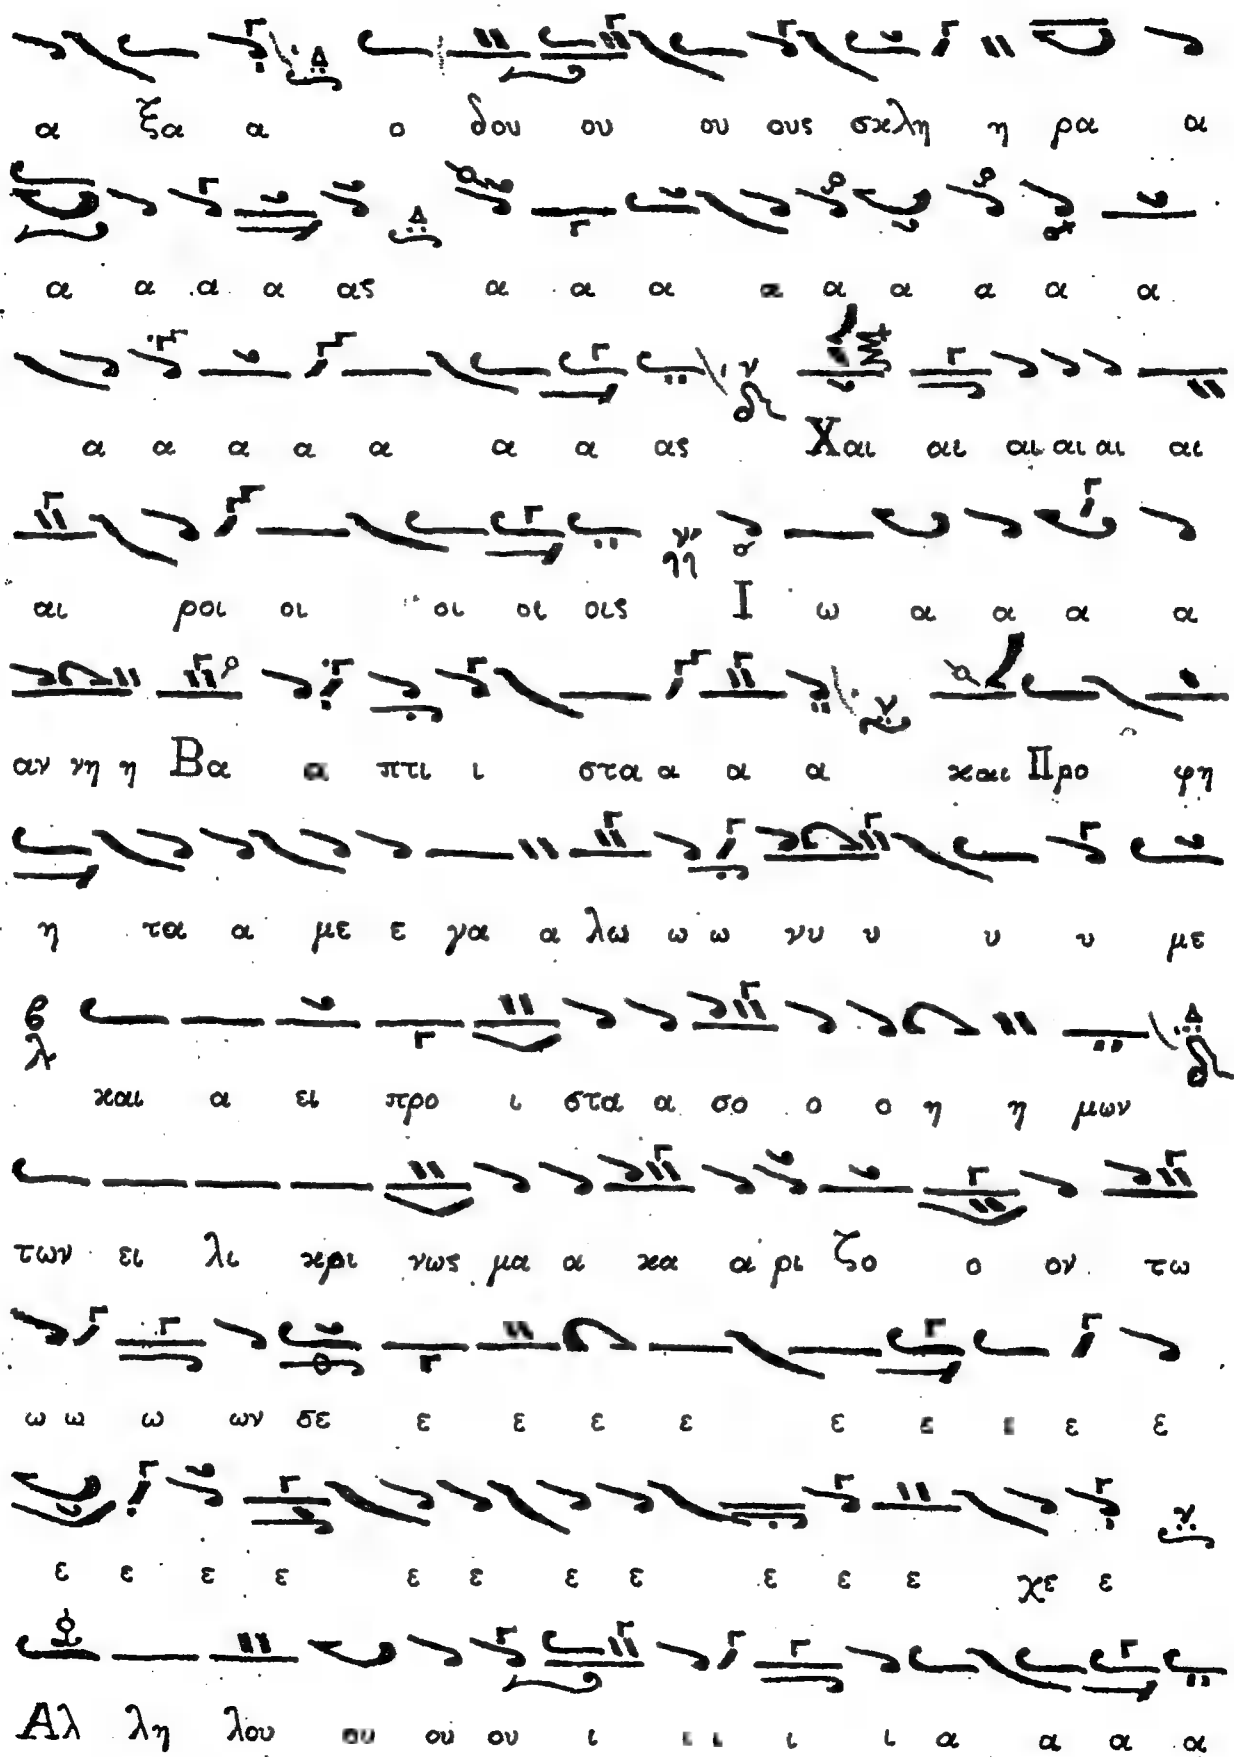 α ξα α ο δου ου ου ους σκλη η ρα α
α α α α ας α α α α α α α α α
α α α α α α α ας Χαι αι αι αι αι αι
αι ροι οι οι οι οις Ι ω α α α α
αν νη η Βα α πτι ι στα α α α και Προ φη
η τα α με ε γα α λω ω ω νυ υ υ υ με
και α ει προ ι στα α σο ο ο η η μων
των ει λι κρι νως μα α κα α ρι ζο ο ον τω
ω ω ω ων σε ε ε ε ε ε ε ε ε ε
ε ε ε ε ε ε ε ε ε ε ε χε ε
Αλ λη λου ου ου ου ι ι ι ι ι α α α α